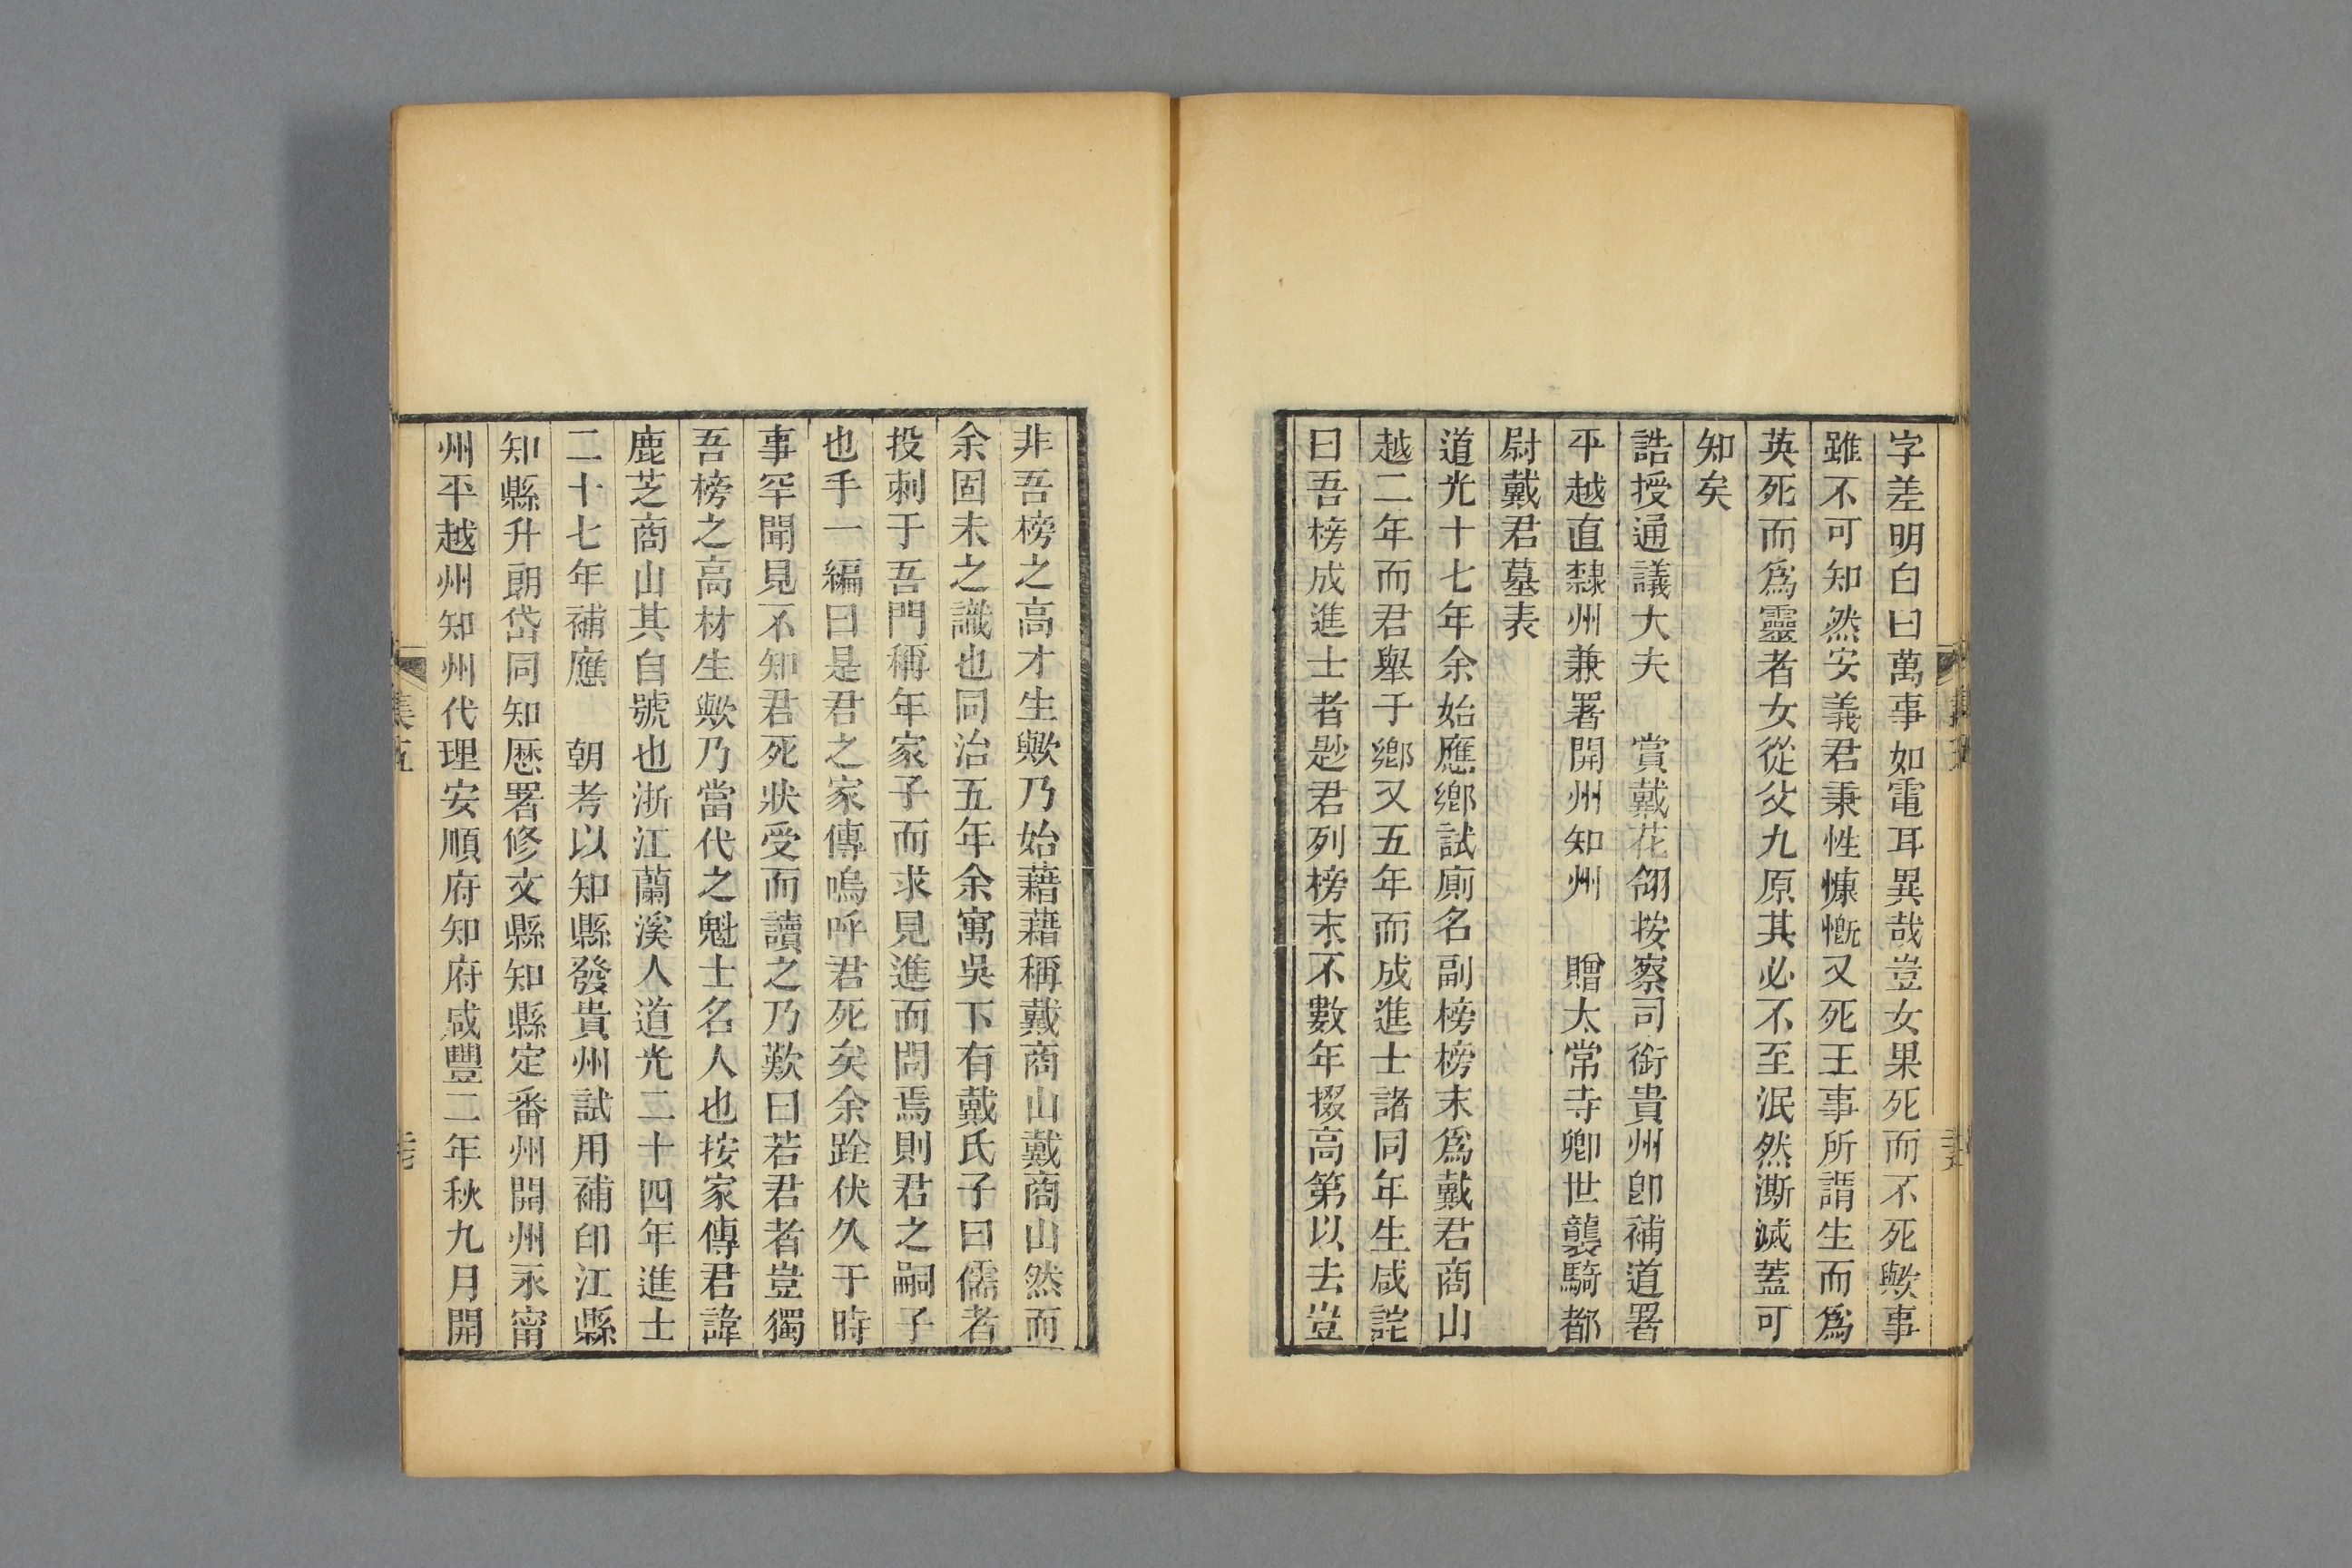 字差明白曰萬事如電耳異哉豈女果死而不死歟事
雖不可知然安義君秉性慷慨又死王事所謂生而爲
英死而爲靈者女從父九原其必不至泯然澌滅蓋可
知矣
誥授通議大夫　賞戴花翎按察司銜貴州卽補道署
平越直隸州兼署開州知州　贈太常寺卿世襲騎都
尉戴君墓表
道光十七年余始應鄉試廁名副榜榜末爲戴君商山
越二年而君舉于鄉又五年而成進士諸同年生咸詫
曰吾榜成進士者尟君列榜末不數年掇高第以去豈
非吾榜之高才生歟乃始藉藉稱戴商山戴商山然而
余固未之識也同治五年余寓吳下有戴氏子曰儒者
投刺于吾門稱年家子而求見進而問焉則君之嗣子
也手一編曰是君之家傳嗚呼君死矣余跧伏久于時
事罕聞見不知君死狀受而讀之乃歎曰若君者豈獨
吾榜之高材生歟乃當代之魁士名人也按家傳君諱
鹿芝商山其自號也浙江蘭溪人道光二十四年進士
二十七年補應　朝考以知縣發貴州試用補印江縣
知縣升朗岱同知歷署修文縣知縣定番州開州永甯
州平越州知州代理安順府知府咸豐二年秋九月開
集五